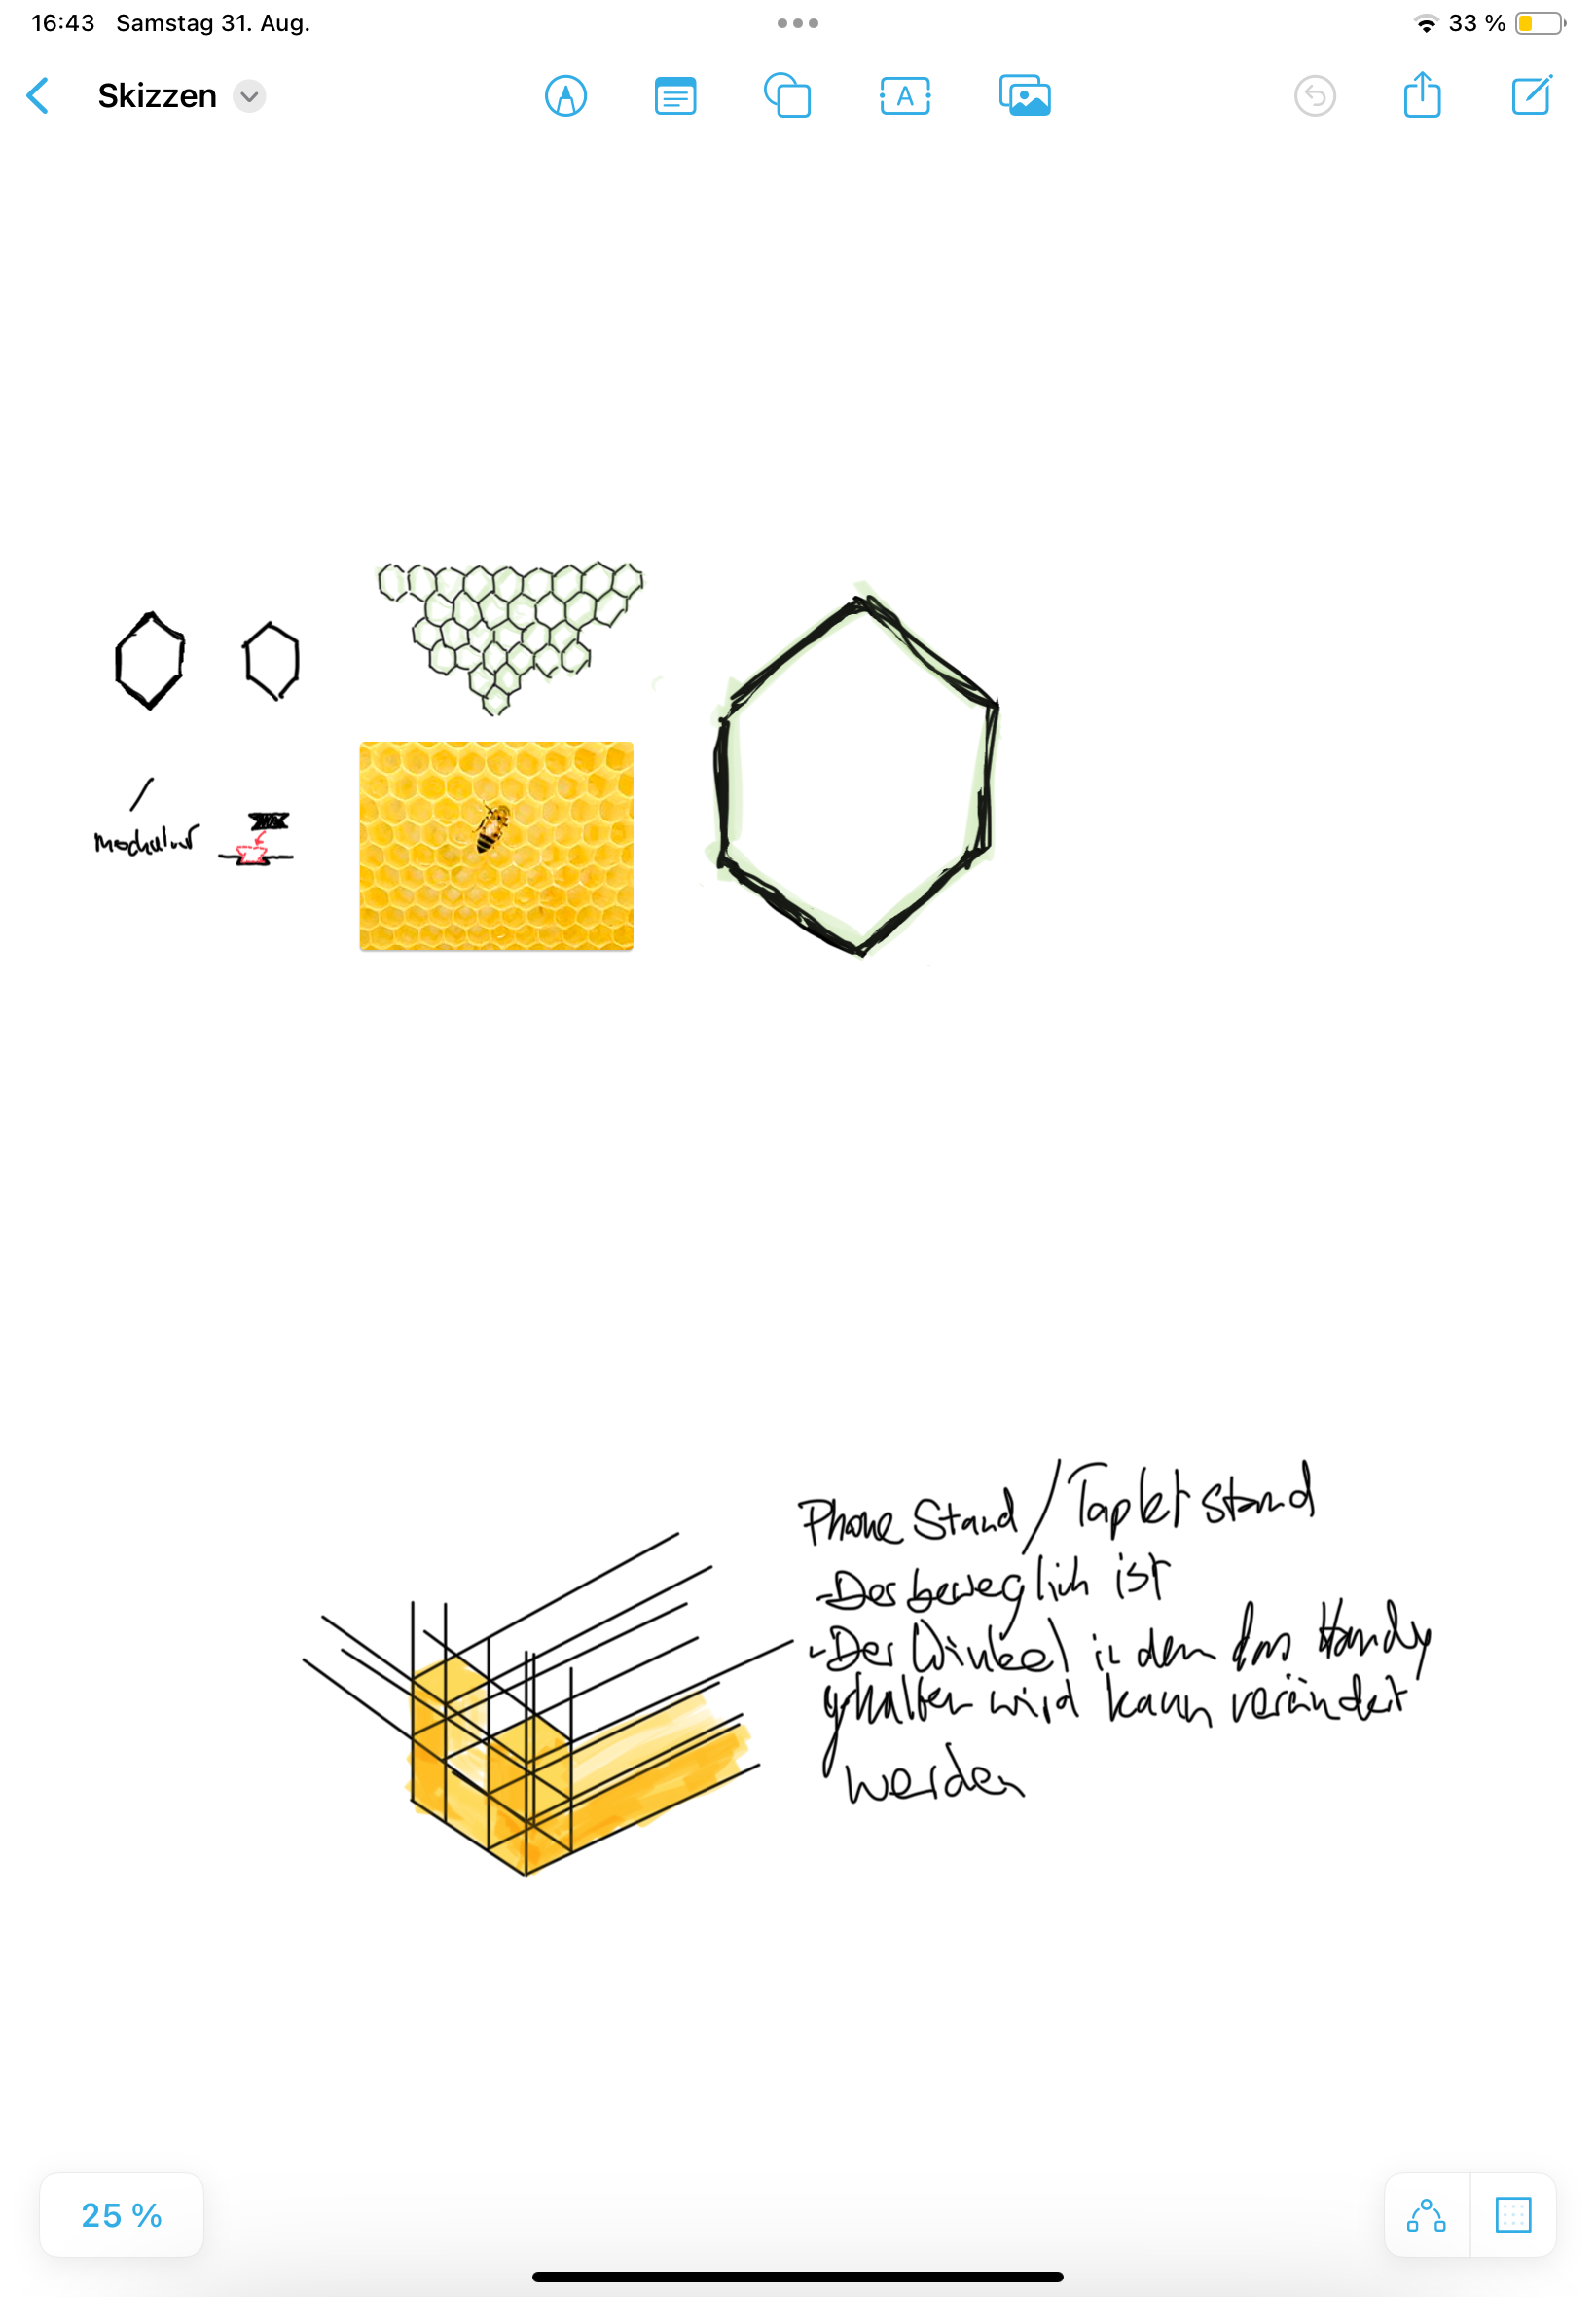 16:43 Samstag 31. Aug.
33 %
Skizzen
A
modular
Phone Stand / Taplet stand
-Das beweglich ist
-Der Winkel in dem das Handy
gehalten wird kann verändert
werden
25 %